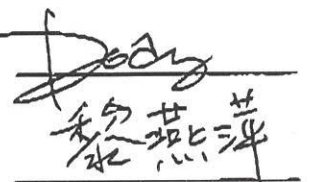 Dody
黎燕萍